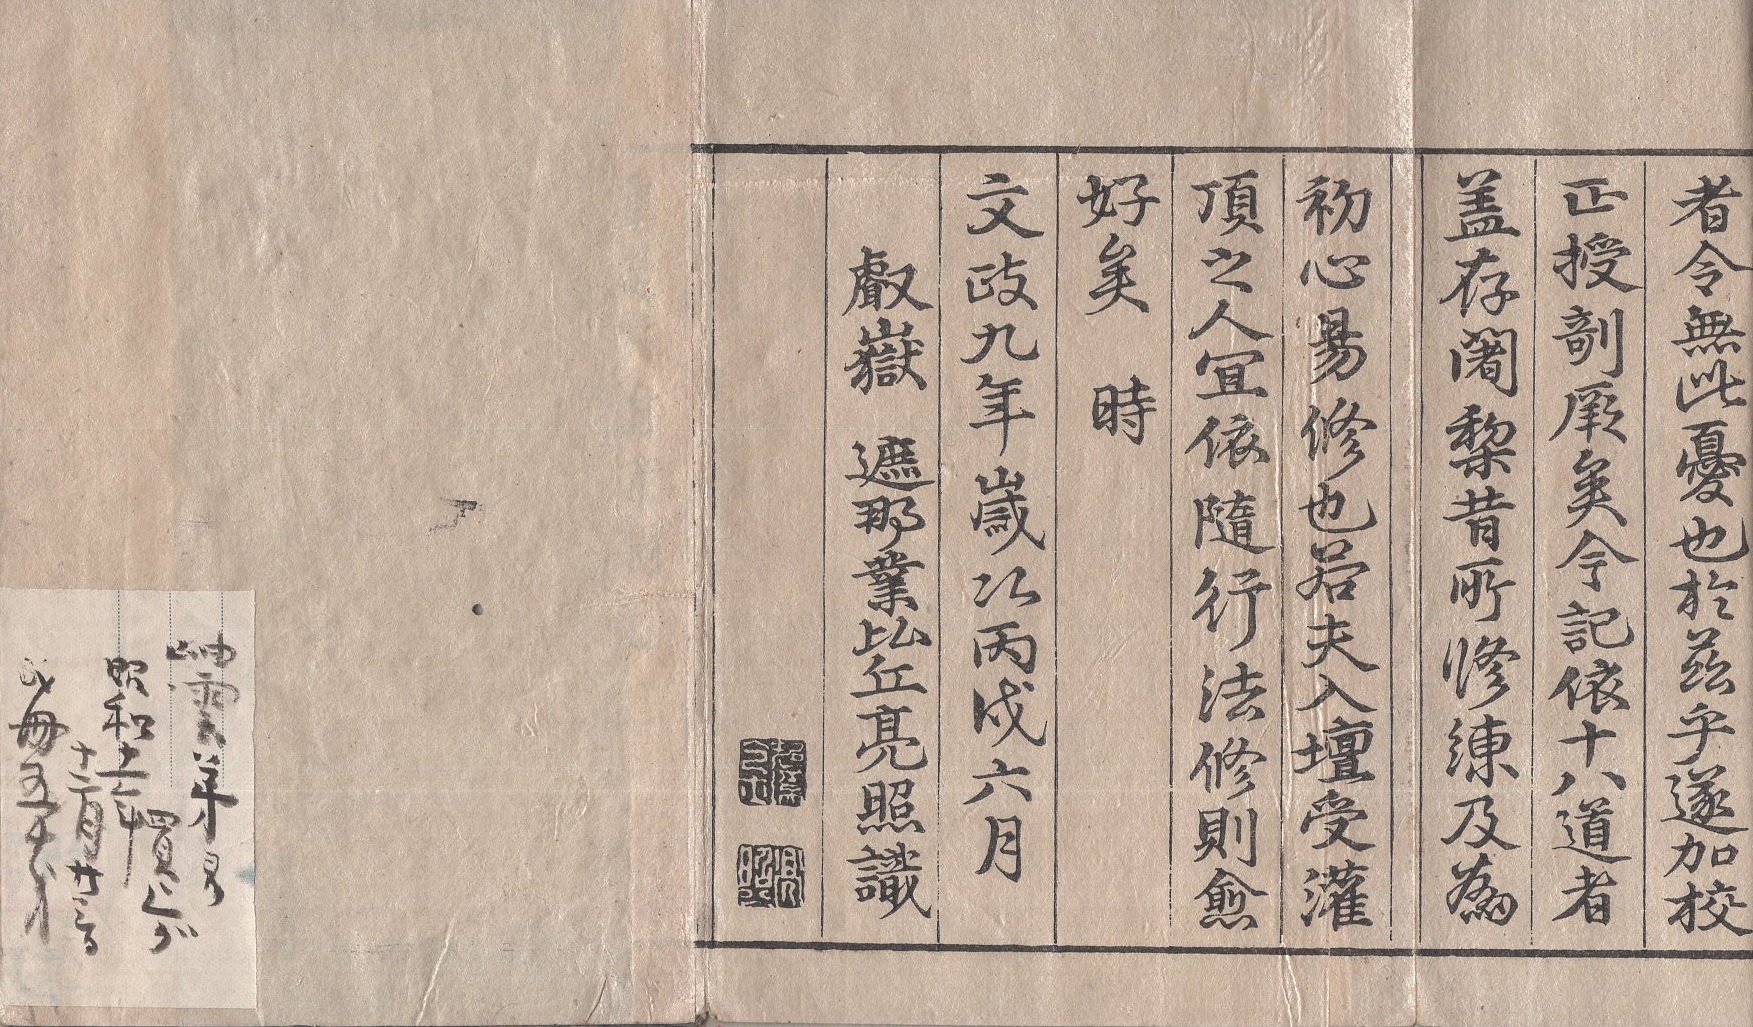 者令無此憂也於茲乎遂加校
正授剞厥矣今記依十八道者
盖存闍黎昔所修練及爲
初心易修也若夫入壇受灌
頂之人宜依隨行法修則愈
好矣　時
文政九年歲次丙戌六月
叡嶽　遮那業比丘亮照識
亮照
昭和十一年
十二月廿三日